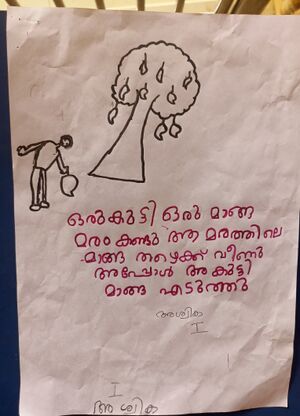 ഒരുകുട്ടി ഒരു മാങ്ങ
മരം കണ്ടു ആ മരത്തിലെ
മാങ്ങ തഴെക്ക് വീണു
അപ്പോൾ അ കുട്ടി
മാങ്ങ എടുത്തു
അശ്വിക
I
I
അശ്വിക